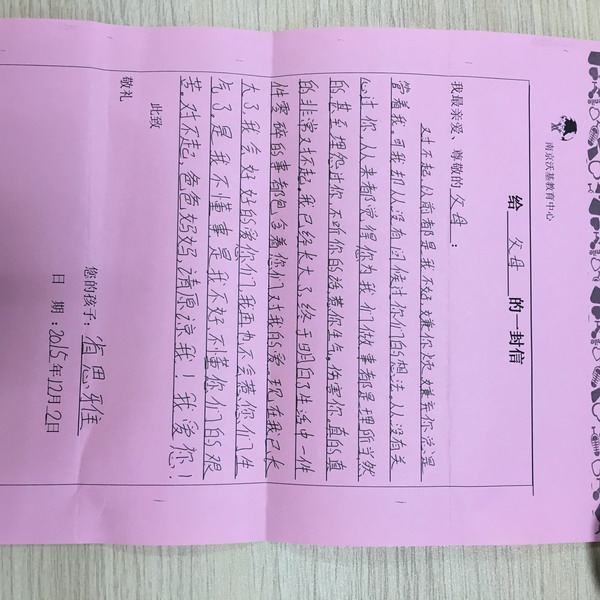 南京沃基教育中心
给 父母 的一封信
我最亲爱、尊敬的 父母 :
对不起,从前都是我不好,嫌你烦,嫌弃你总湿
管着我。可我却从没有问候过你们的想法,从没有关
心过你,从来都觉得你为我们做事都是理所当然
的,甚至埋怨过你,不听你的话惹你生气,伤害你,真的真
的非常对不起。我已经长大了,终于明白了生活中一件
件零碎的事都包含着你们对我的爱。现在我已长
大了,我会好好的爱你们,我再也不会惹你们生
气了,是我不懂事,是我不好,不懂你们的艰
苦。对不起,爸爸妈妈,请原谅我!我爱你!
此致
敬礼
您的孩子:思雅
日 期:2015年12月2日